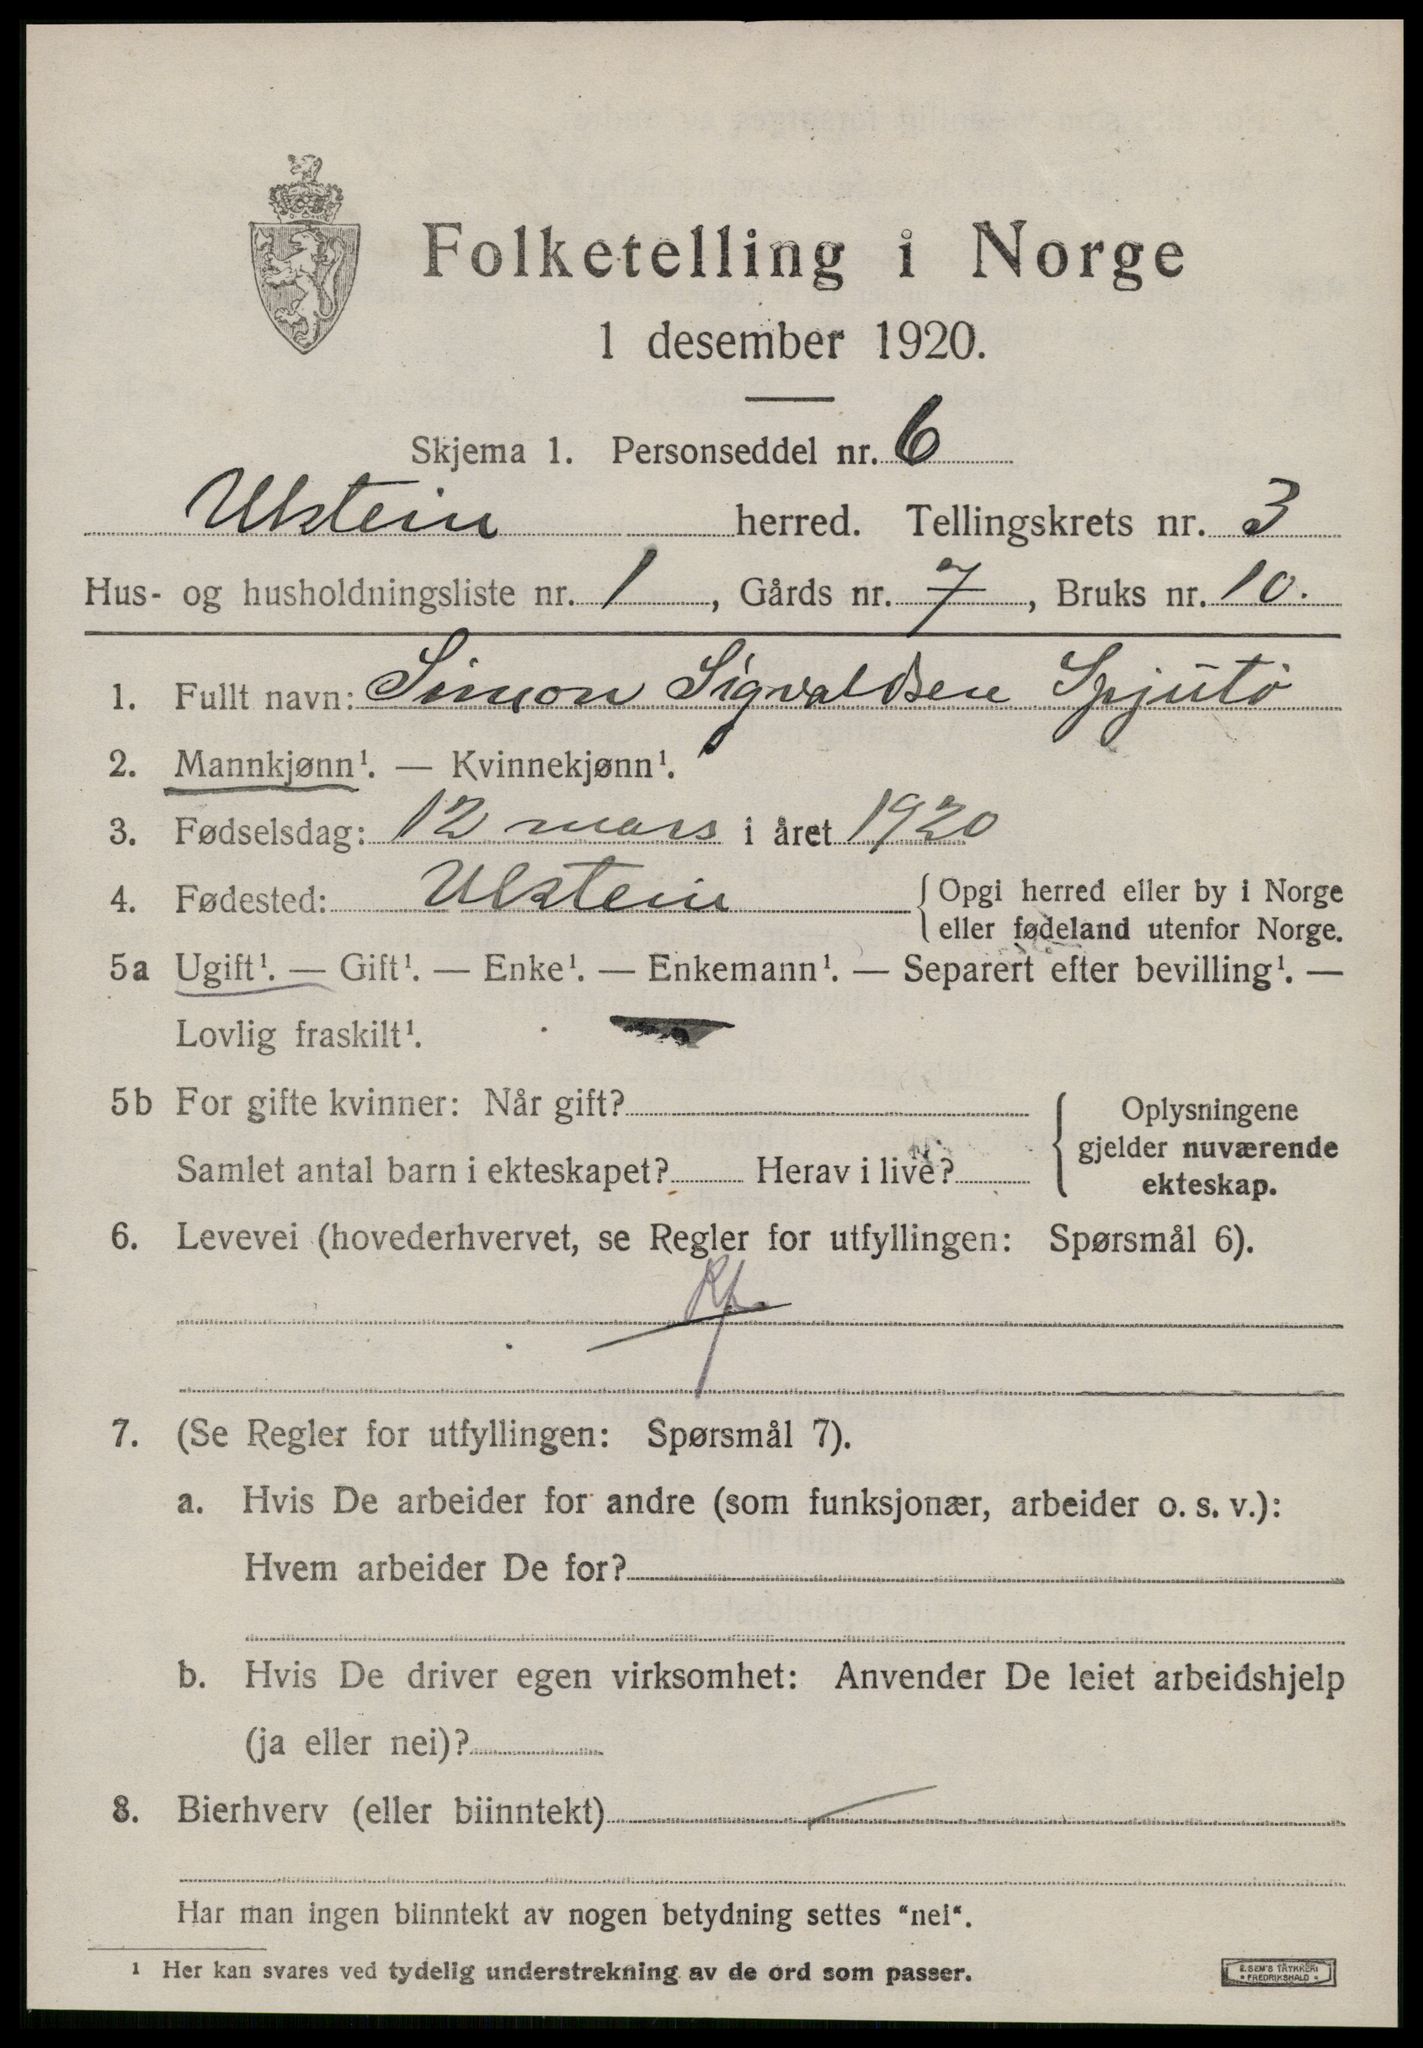 Folketelling i Norge
1 desember 1920.
Skjema 1. Personseddel nr. 6
Ulstein herred. Tellingskrets nr. 3
Hus- og husholdningsliste nr. 1, Gårds nr. 7, Bruks nr. 10.
1. Fullt navn: Simon Sigvaldsen Spjutö
2. Mannkjønn¹. — Kvinnekjønn¹.
3. Fødselsdag: 12 mars i året 1920
4. Fødested: Ulstein { Opgi herred eller by i Norge
eller fødeland utenfor Norge.
5a Ugift¹. — Gift¹. — Enke¹. — Enkemann¹. — Separert efter bevilling¹. —
Lovlig fraskilt¹.
5b For gifte kvinner: Når gift?
Samlet antal barn i ekteskapet? Herav i live?
{ Oplysningene
gjelder nuværende
ekteskap.
6. Levevei (hovederhvervet, se Regler for utfyllingen: Spørsmål 6).
7. (Se Regler for utfyllingen: Spørsmål 7).
a. Hvis De arbeider for andre (som funksjonær, arbeider o. s. v.):
Hvem arbeider De for?
b. Hvis De driver egen virksomhet: Anvender De leiet arbeidshjelp
(ja eller nei)?
8. Bierhverv (eller biinntekt) —
Har man ingen biinntekt av nogen betydning settes “nei“.
1 Her kan svares ved tydelig understrekning av de ord som passer.
E. SEM'S TRYKKERI
* FREDRIKSHALD *